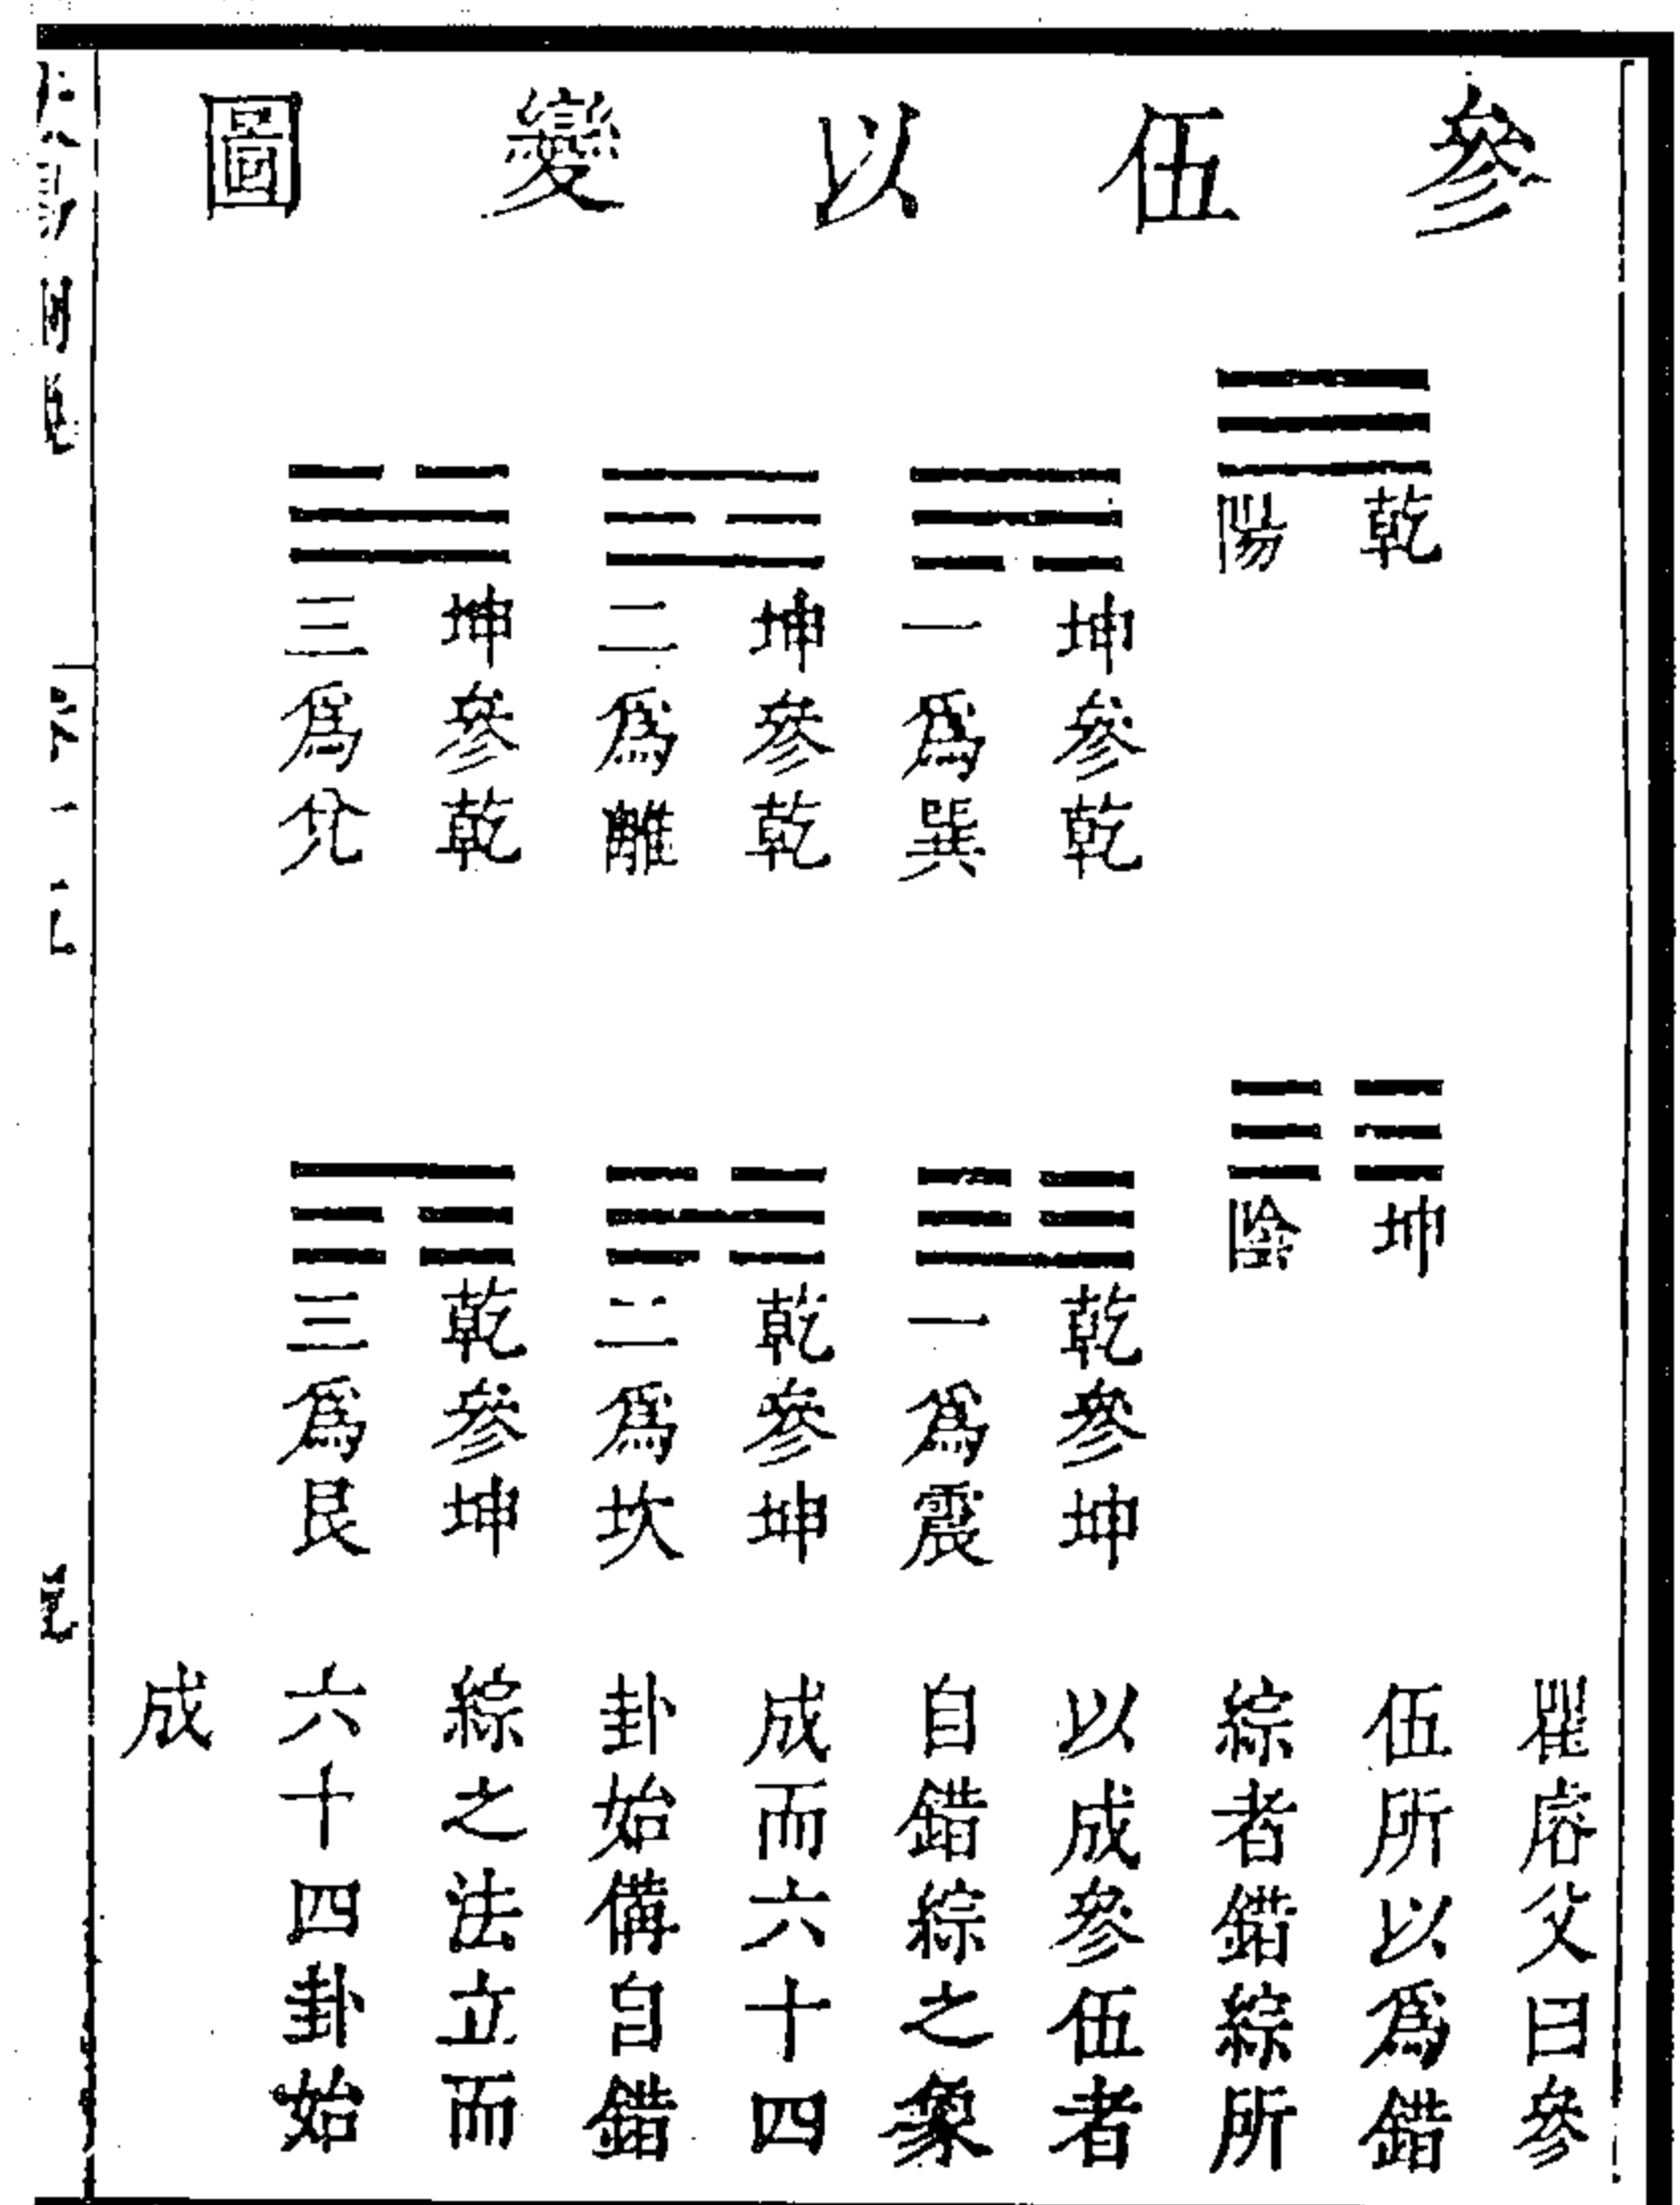 參伍以變圖
乾
陽
坤參乾
一爲巽
坤參乾
二爲離
坤參乾
三爲兊
坤
陰
乾參坤
一爲震
乾參坤
二爲坎
乾參坤
三爲艮
瞿睿父曰參
伍所以爲錯
綜者錯綜所
以成參伍者
自錯綜之象
成而六十四
卦始備自錯
綜之法立而
六十四卦始
成